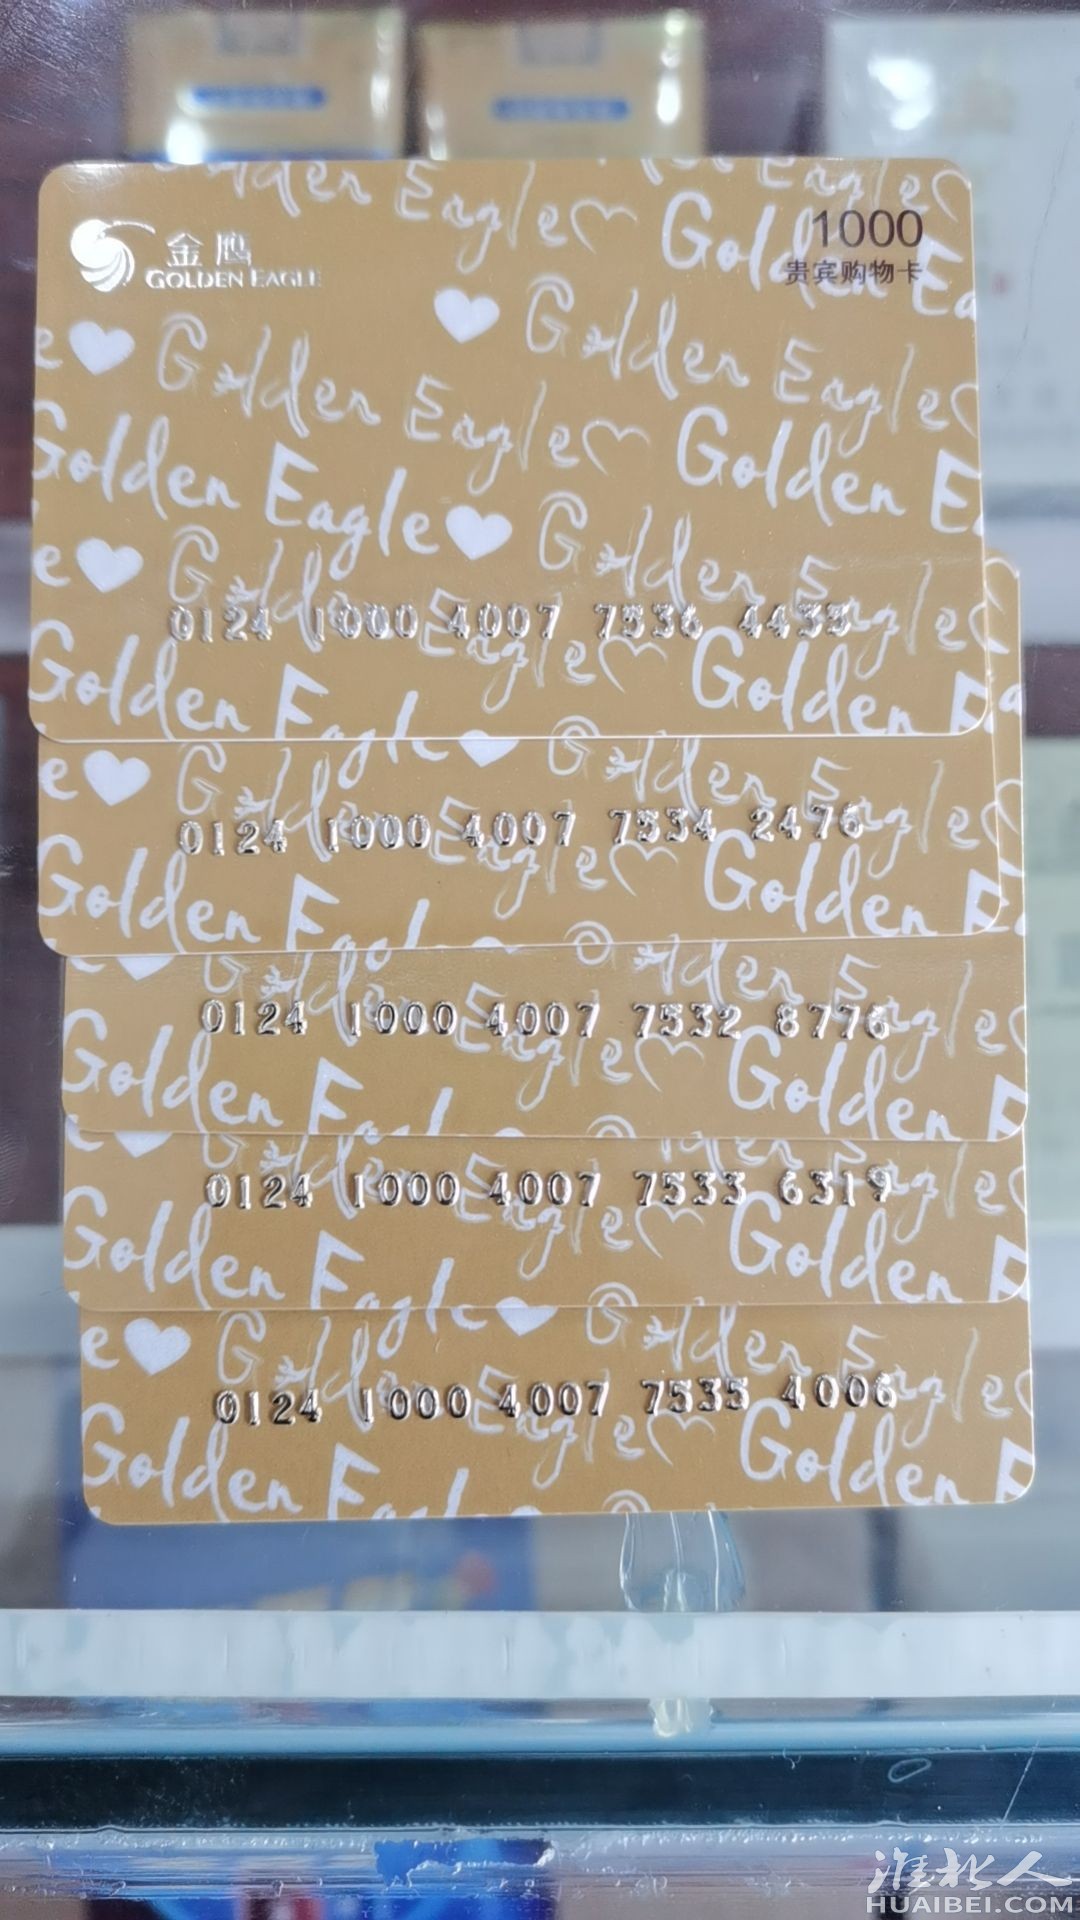 金鹰
GOLDEN EAGLE
1000
贵宾购物卡
Golden Eagle
Golden Eagle
Golden Eagle
Golden Eagle
0124 1000 4007 7536 4435
Golden Eagle
0124 1000 4007 7534 2476
Golden Eagle
0124 1000 4007 7532 8776
Golden Eagle
0124 1000 4007 7533 6319
Golden Eagle
0124 1000 4007 7535 4006
Golden
淮北人
HUAIBEI.COM